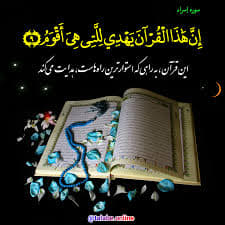 سوره اسراء
إِنَّ هَٰذَا الْقُرْآنَ يَهْدِي لِلَّتِي هِيَ أَقْوَمُ ﴿٩﴾
این قرآن، به راهی که استوارترین راه‌هاست، هدایت می‌کند
@talabe.online